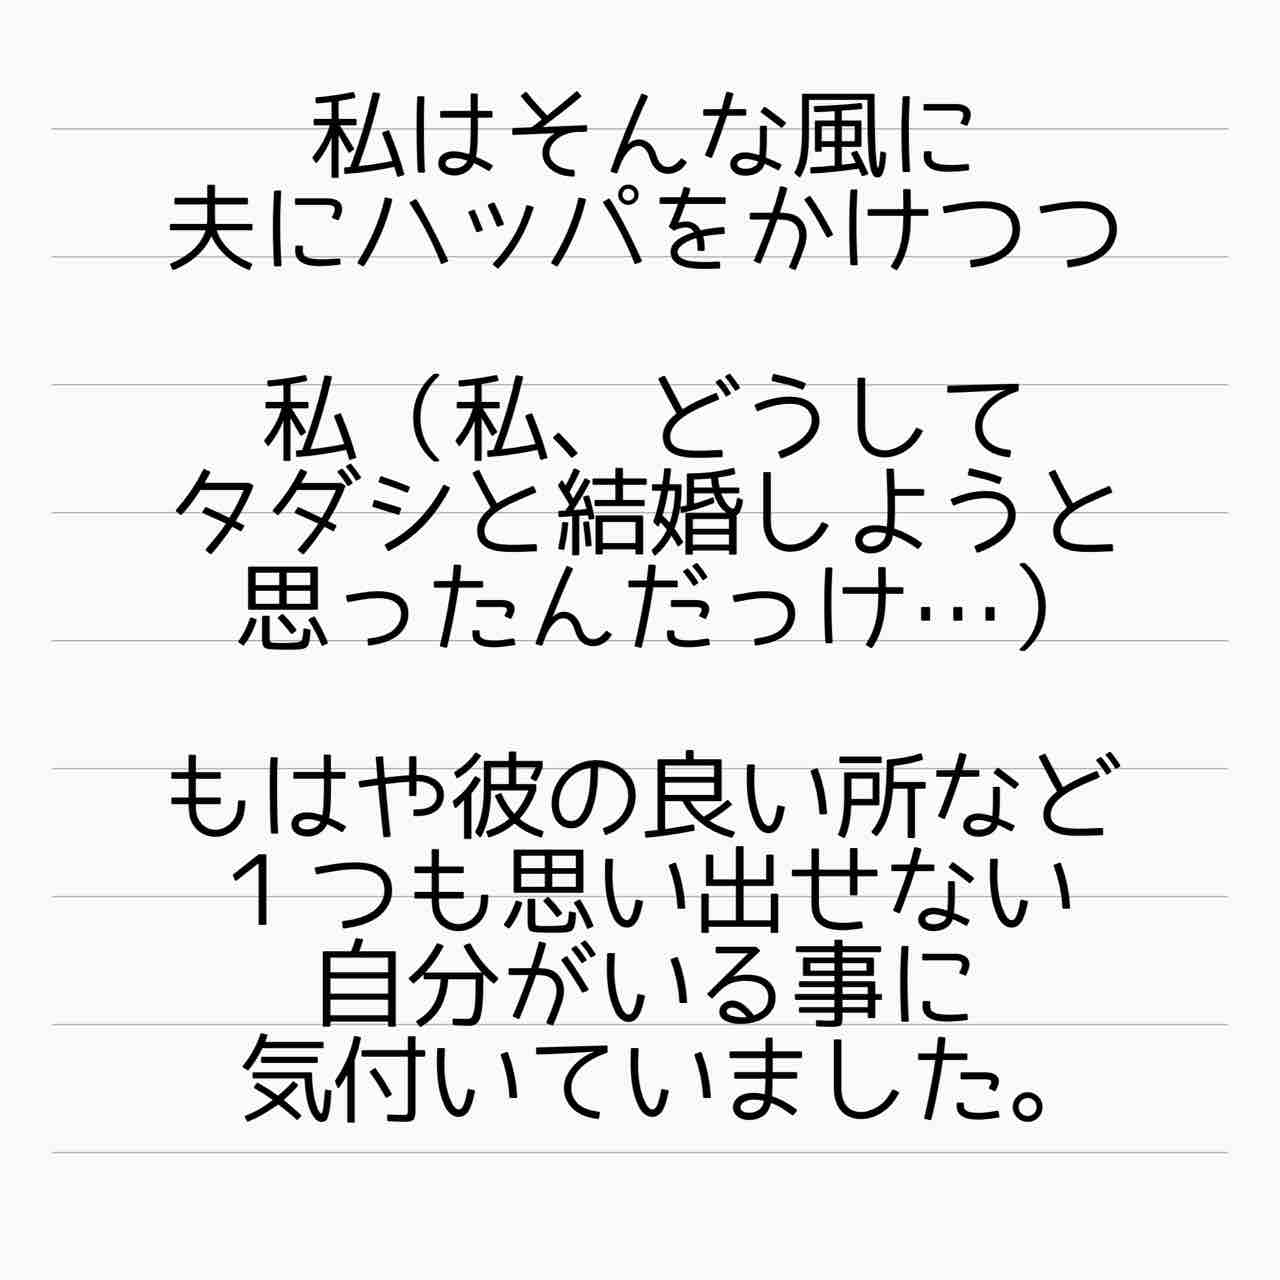 私はそんな風に
夫にハッパをかけつつ
私（私、どうして
タダシと結婚しようと
思ったんだっけ…）
もはや彼の良い所など
１つも思い出せない
自分がいる事に
気付いていました。